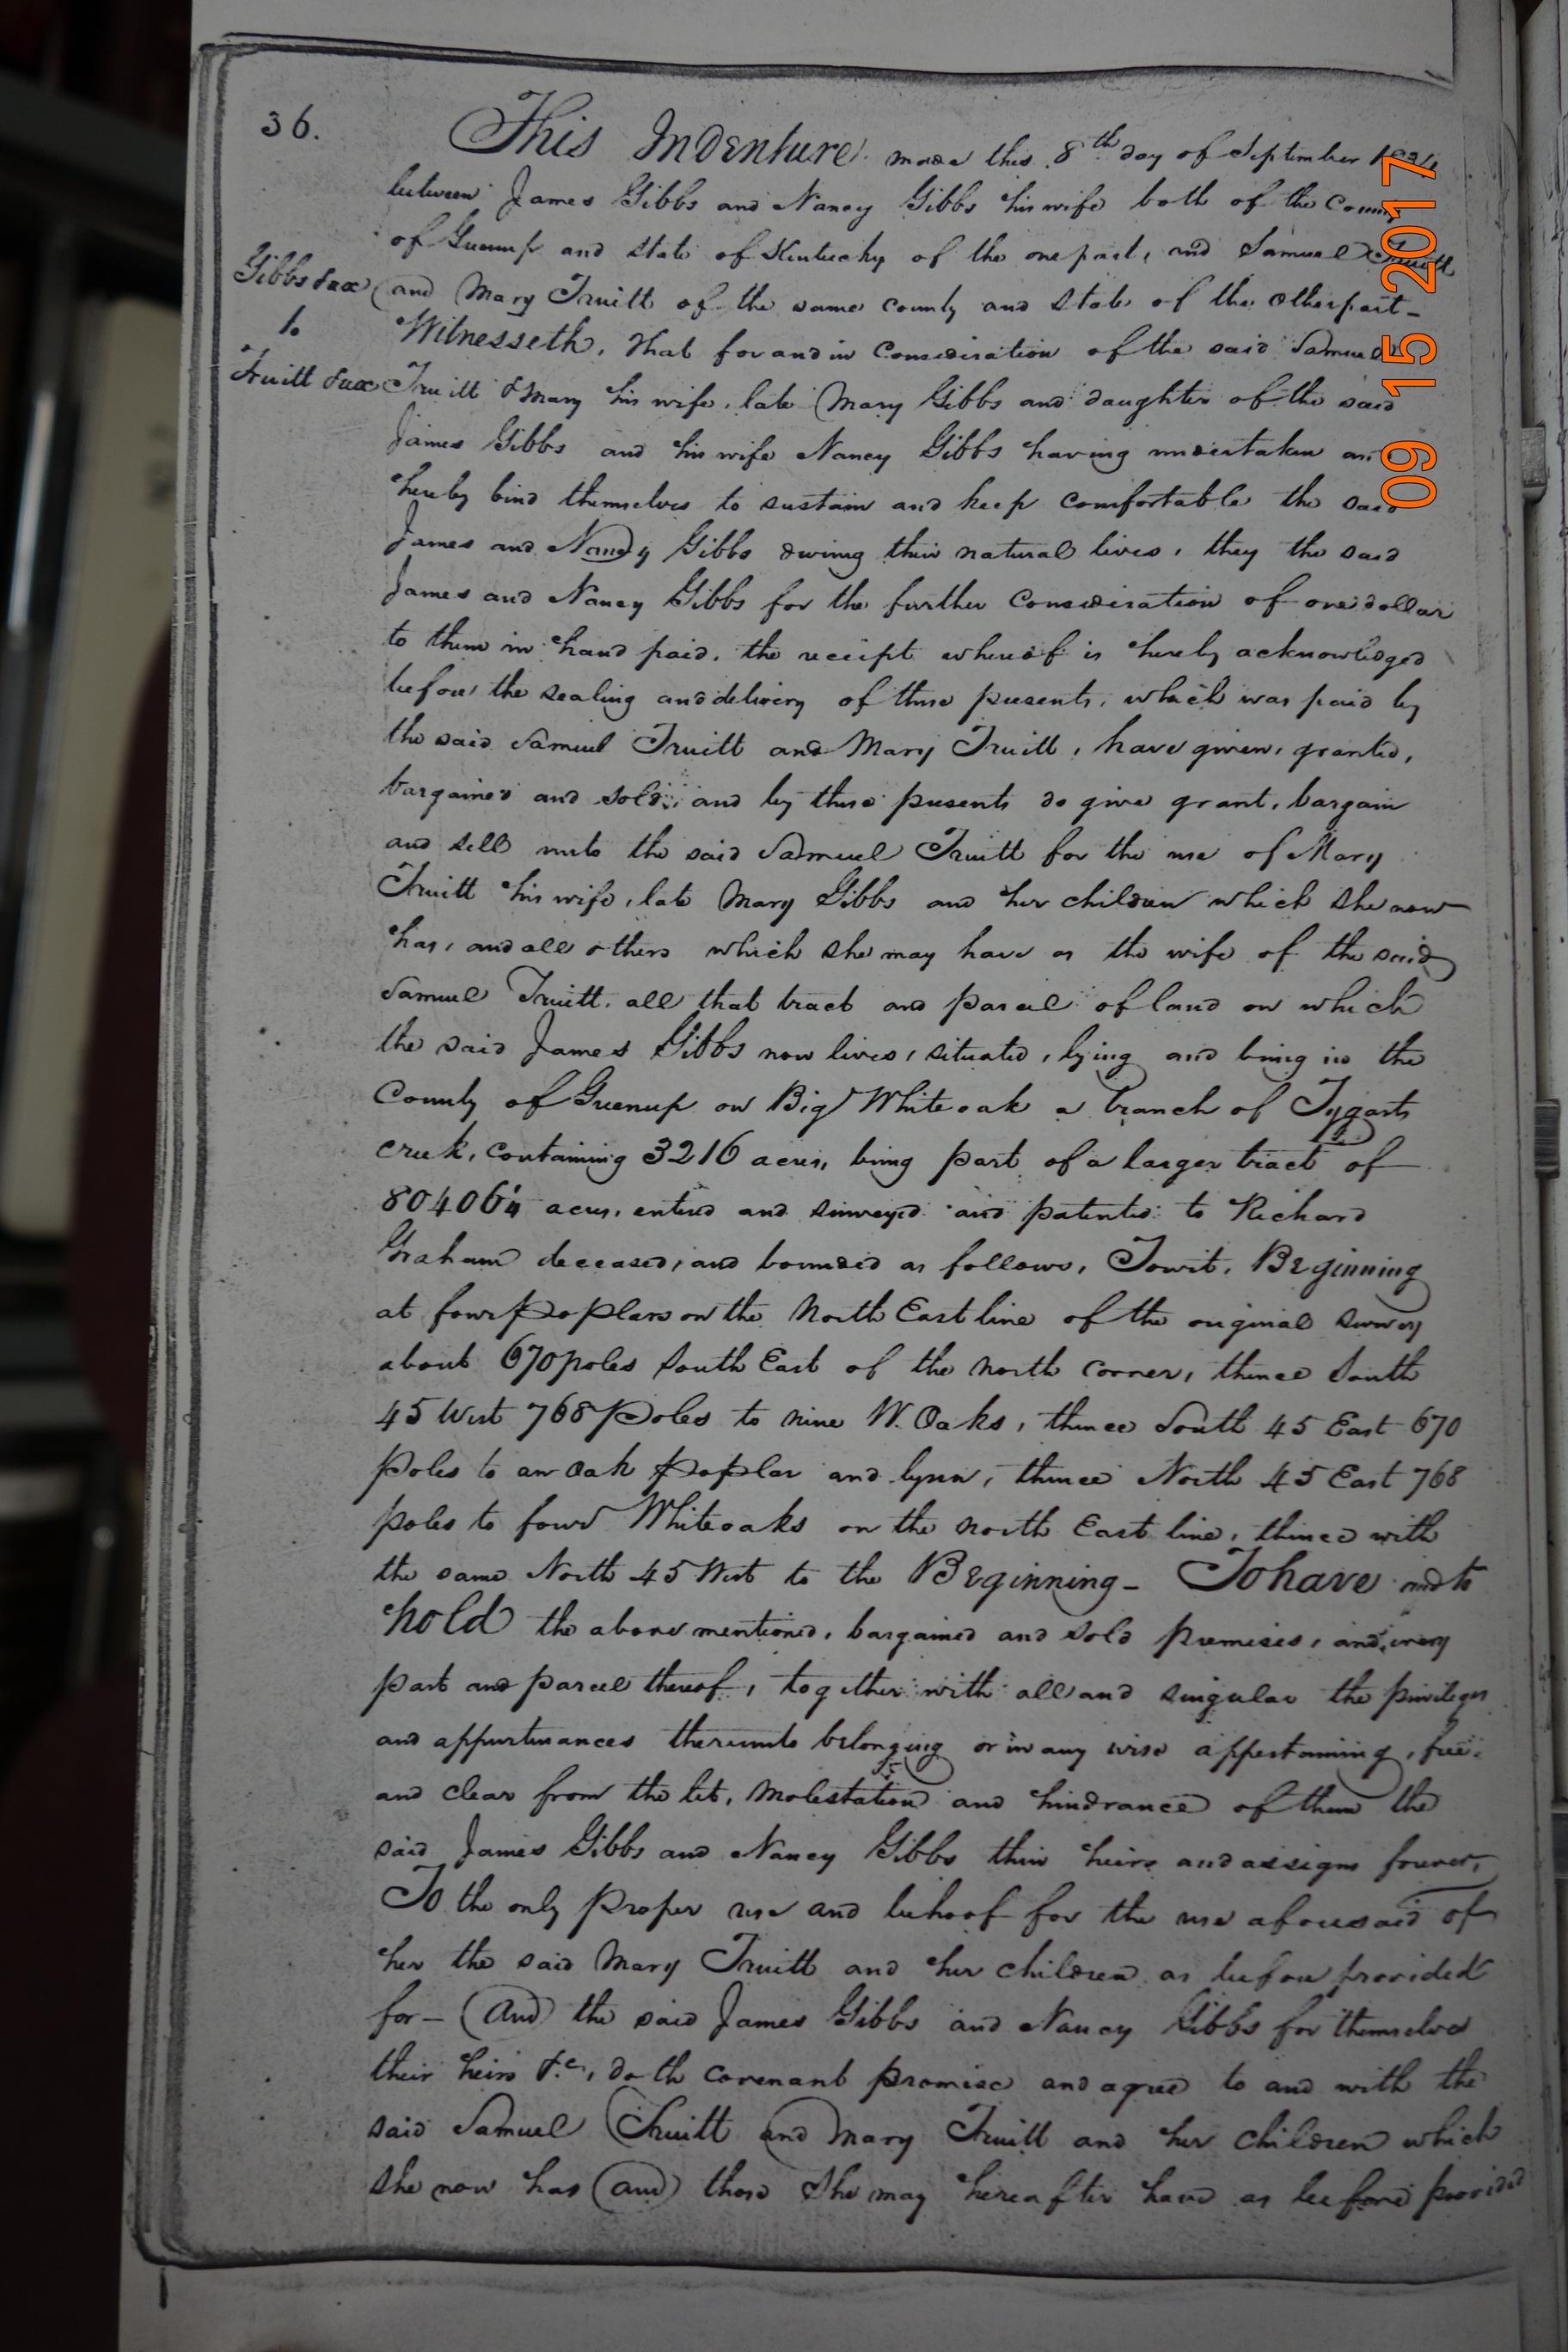 36.
This Indenture made this 8th day of September
between James Gibbs and Nancy Gibbs his wife both of the County
of Greenup and State of Kentucky of the one part, and Samuel Truitt
Gibbs &ux
to
Truitt &ux
and Mary Truitt of the same County and State of the other part –
Witnesseth, that for and in Consideration of the said Samuel
Truitt & Mary his wife, late Mary Gibbs and daughter of the said
James Gibbs and his wife Nancy Gibbs having undertaken and
hereby bind themselves to sustain and keep comfortable the said
James and Nancy Gibbs during their natural lives, they the said
James and Nancy Gibbs for the further Consideration of one dollar
to them in hand paid, the receipt whereof is hereby acknowledged
before the sealing and delivery of these presents, which was paid by
the said Samuel Truitt and Mary Truitt, have given, granted,
bargained and sold, and by these presents do give grant, bargain
and sell unto the said Samuel Truitt for the use of Mary
Truitt his wife, late Mary Gibbs and her children which she now
has, and all others which she may have as the wife of the said
Samuel Truitt, all that tract and parcel of land on which
the said James Gibbs now lives, situated, lying and being in the
County of Greenup on Big White oak a branch of Tygarts
creek, containing 3216 acres, being part of a larger tract of
80406¼ acres, entered and surveyed and patented to Richard
Graham deceased, and bounded as follows, Towit, Beginning
at four poplars on the North East line of the original survey
about 670 poles South East of the north corner, thence South
45 West 768 Poles to nine W. Oaks, thence South 45 East 670
Poles to an Oak poplar and lynn, thence North 45 East 768
poles to four Whiteoaks on the north East line, thence with
the same North 45 West to the Beginning – To have and to
hold the above mentioned, bargained and sold premises, and every
part and parcel thereof, together with all and singular the privileges
and appurtenances thereunto belonging or in any wise appertaining, free
and clear from the let, molestation and hindrance of them the
said James Gibbs and Nancy Gibbs their heirs and assigns forever,
To the only proper use and behoof for the use aforesaid of
her the said Mary Truitt and her children as before provided
for – And the said James Gibbs and Nancy Gibbs for themselves
their heirs &c, doth covenant promise and agree to and with the
said Samuel Truitt and Mary Truitt and her children which
she now has and those she may hereafter have as before provided
09 15 2017